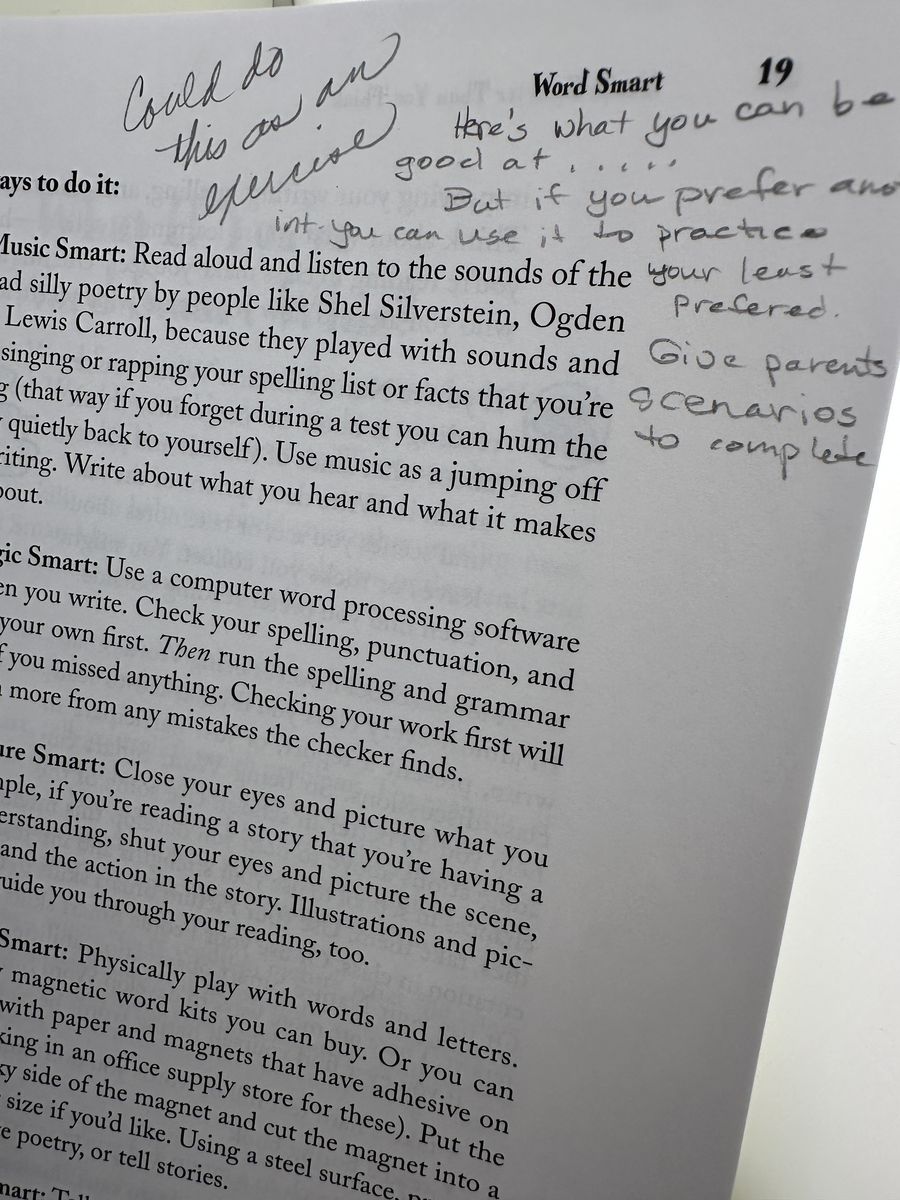 Could do
this as an
exercise
Word Smart 19
Here's what you can be
good at .....
But if you prefer ano
int. you can use it to practice
your least
prefered.
Give parents
scenarios
to complete
ays to do it:
Music Smart: Read aloud and listen to the sounds of the
ad silly poetry by people like Shel Silverstein, Ogden
Lewis Carroll, because they played with sounds and
singing or rapping your spelling list or facts that you're
g (that way if you forget during a test you can hum the
quietly back to yourself). Use music as a jumping off
riting. Write about what you hear and what it makes
bout.
gic Smart: Use a computer word processing software
en you write. Check your spelling, punctuation, and
your own first. Then run the spelling and grammar
f you missed anything. Checking your work first will
more from any mistakes the checker finds.
ure Smart: Close your eyes and picture what you
mple, if you're reading a story that you're having a
erstanding, shut your eyes and picture the scene,
and the action in the story. Illustrations and pic-
uide you through your reading, too.
Smart: Physically play with words and letters.
magnetic word kits you can buy. Or you can
with paper and magnets that have adhesive on
king in an office supply store for these). Put the
ky side of the magnet and cut the magnet into a
size if you'd like. Using a steel surface,
e poetry, or tell stories.
mart: